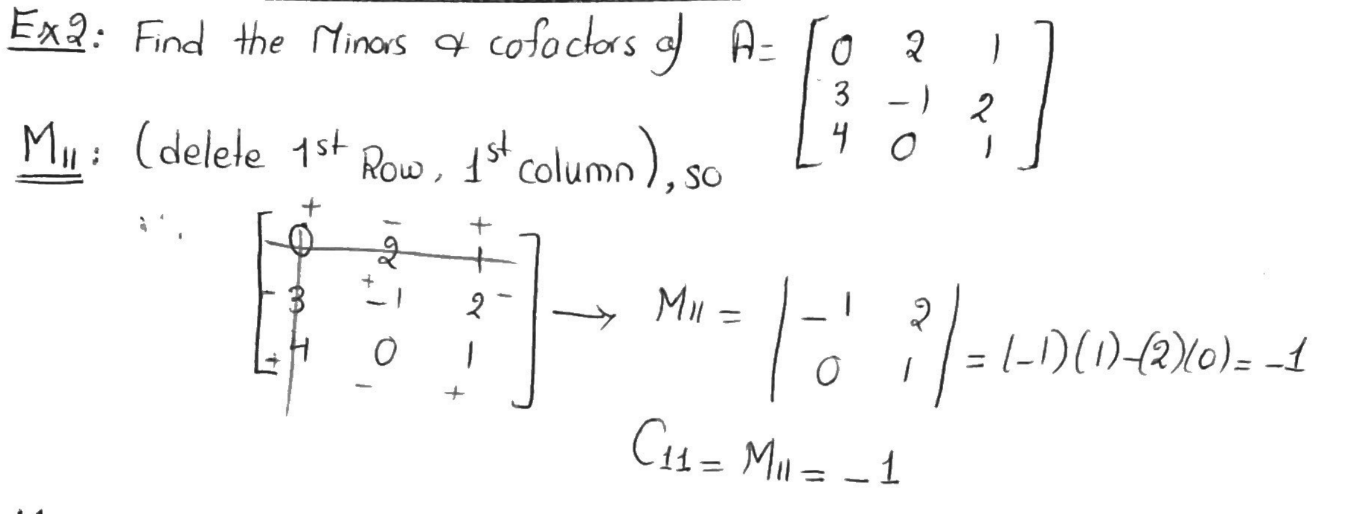 Ex2: Find the Minors & cofactors of A= [0 2 1
3 -1 2
4 0 1]
M11: (delete 1st Row, 1st column), so
+ - +
[0 2 1
- 3 + -1 2 -
+ 4 0 1]
- +
→ M11 = |-1 2
0 1| = (-1)(1)-(2)(0)= -1
C11 = M11 = -1